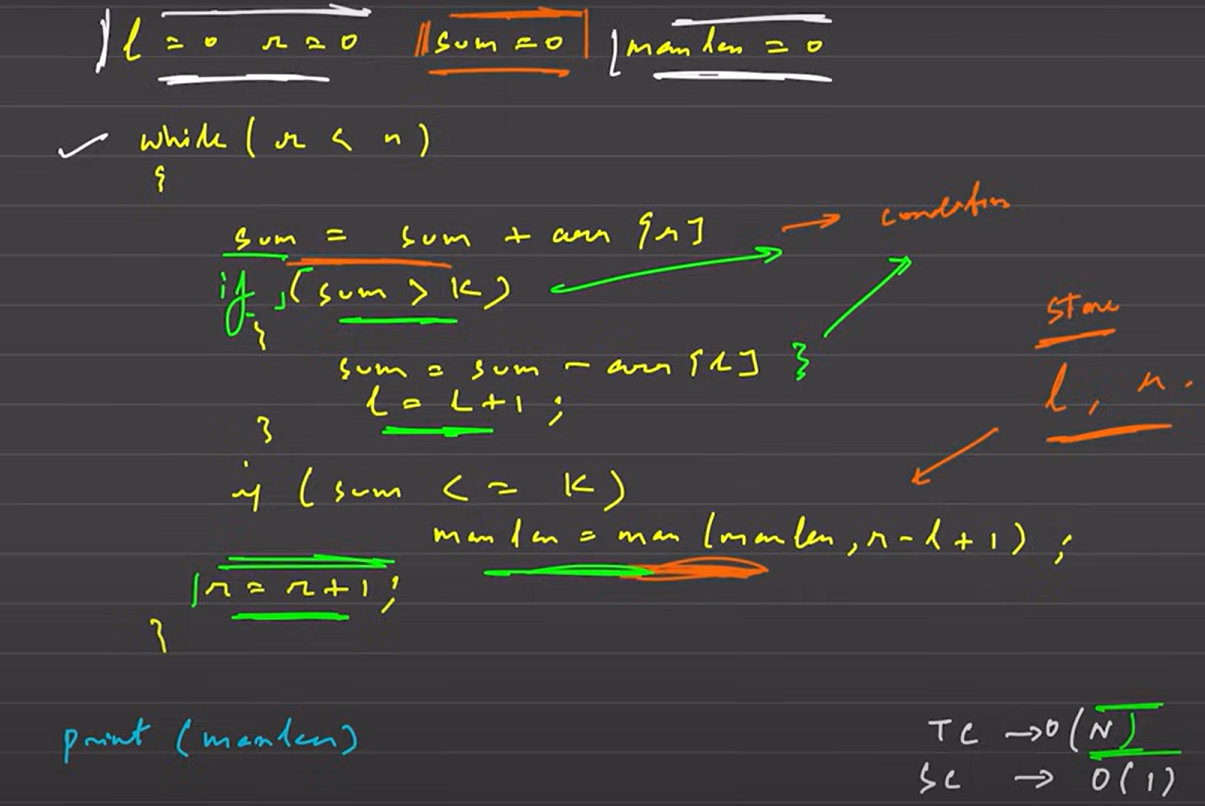 l = 0 r = 0 sum = 0 maxlen = 0
while ( r < n )
{
sum = sum + arr [r] → condition
if ( sum > K )
{
store
sum = sum - arr [l] }
l = l + 1 ;
l, r.
}
if ( sum <= K )
maxlen = max (maxlen, r - l + 1) ;
r = r + 1 ;
}
print (maxlen)
TC → O(N)
SC → O(1)